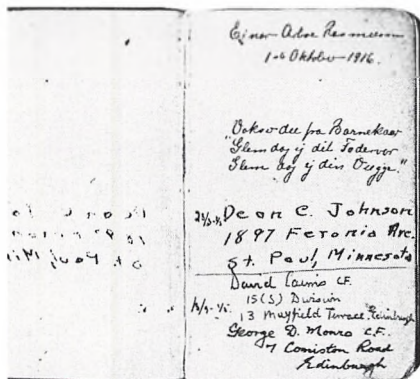 Einar Arboe Rasmussen
1ste Oktober 1916.
"Voksde fra Barnekaar
Glem dog ej dit Fodevor
Glem dog ej din Vugge."
Dean C. Johnson
1897 Feronia Ave.
St. Paul, Minnesota
David Cairns CF.
15(S) Division
13 Mayfield Terrace, Edinburgh
George D. Monro C.F.
7 Comiston Road
Edinburgh